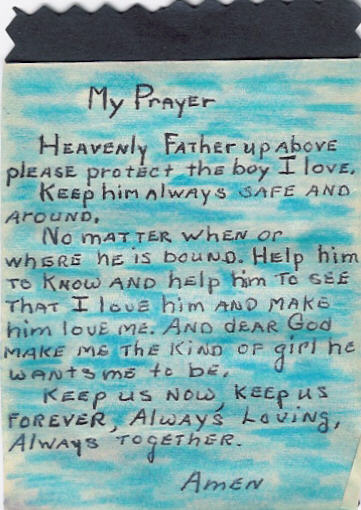 My Prayer
Heavenly Father up above
please protect the boy I love.
Keep him always safe and
around.
No matter when or
where he is bound. Help him
to know and help him to see
that I love him and make
him love me. And dear God
make me the kind of girl he
wants me to be.
Keep us now, keep us
forever, Always Loving,
Always together.
Amen